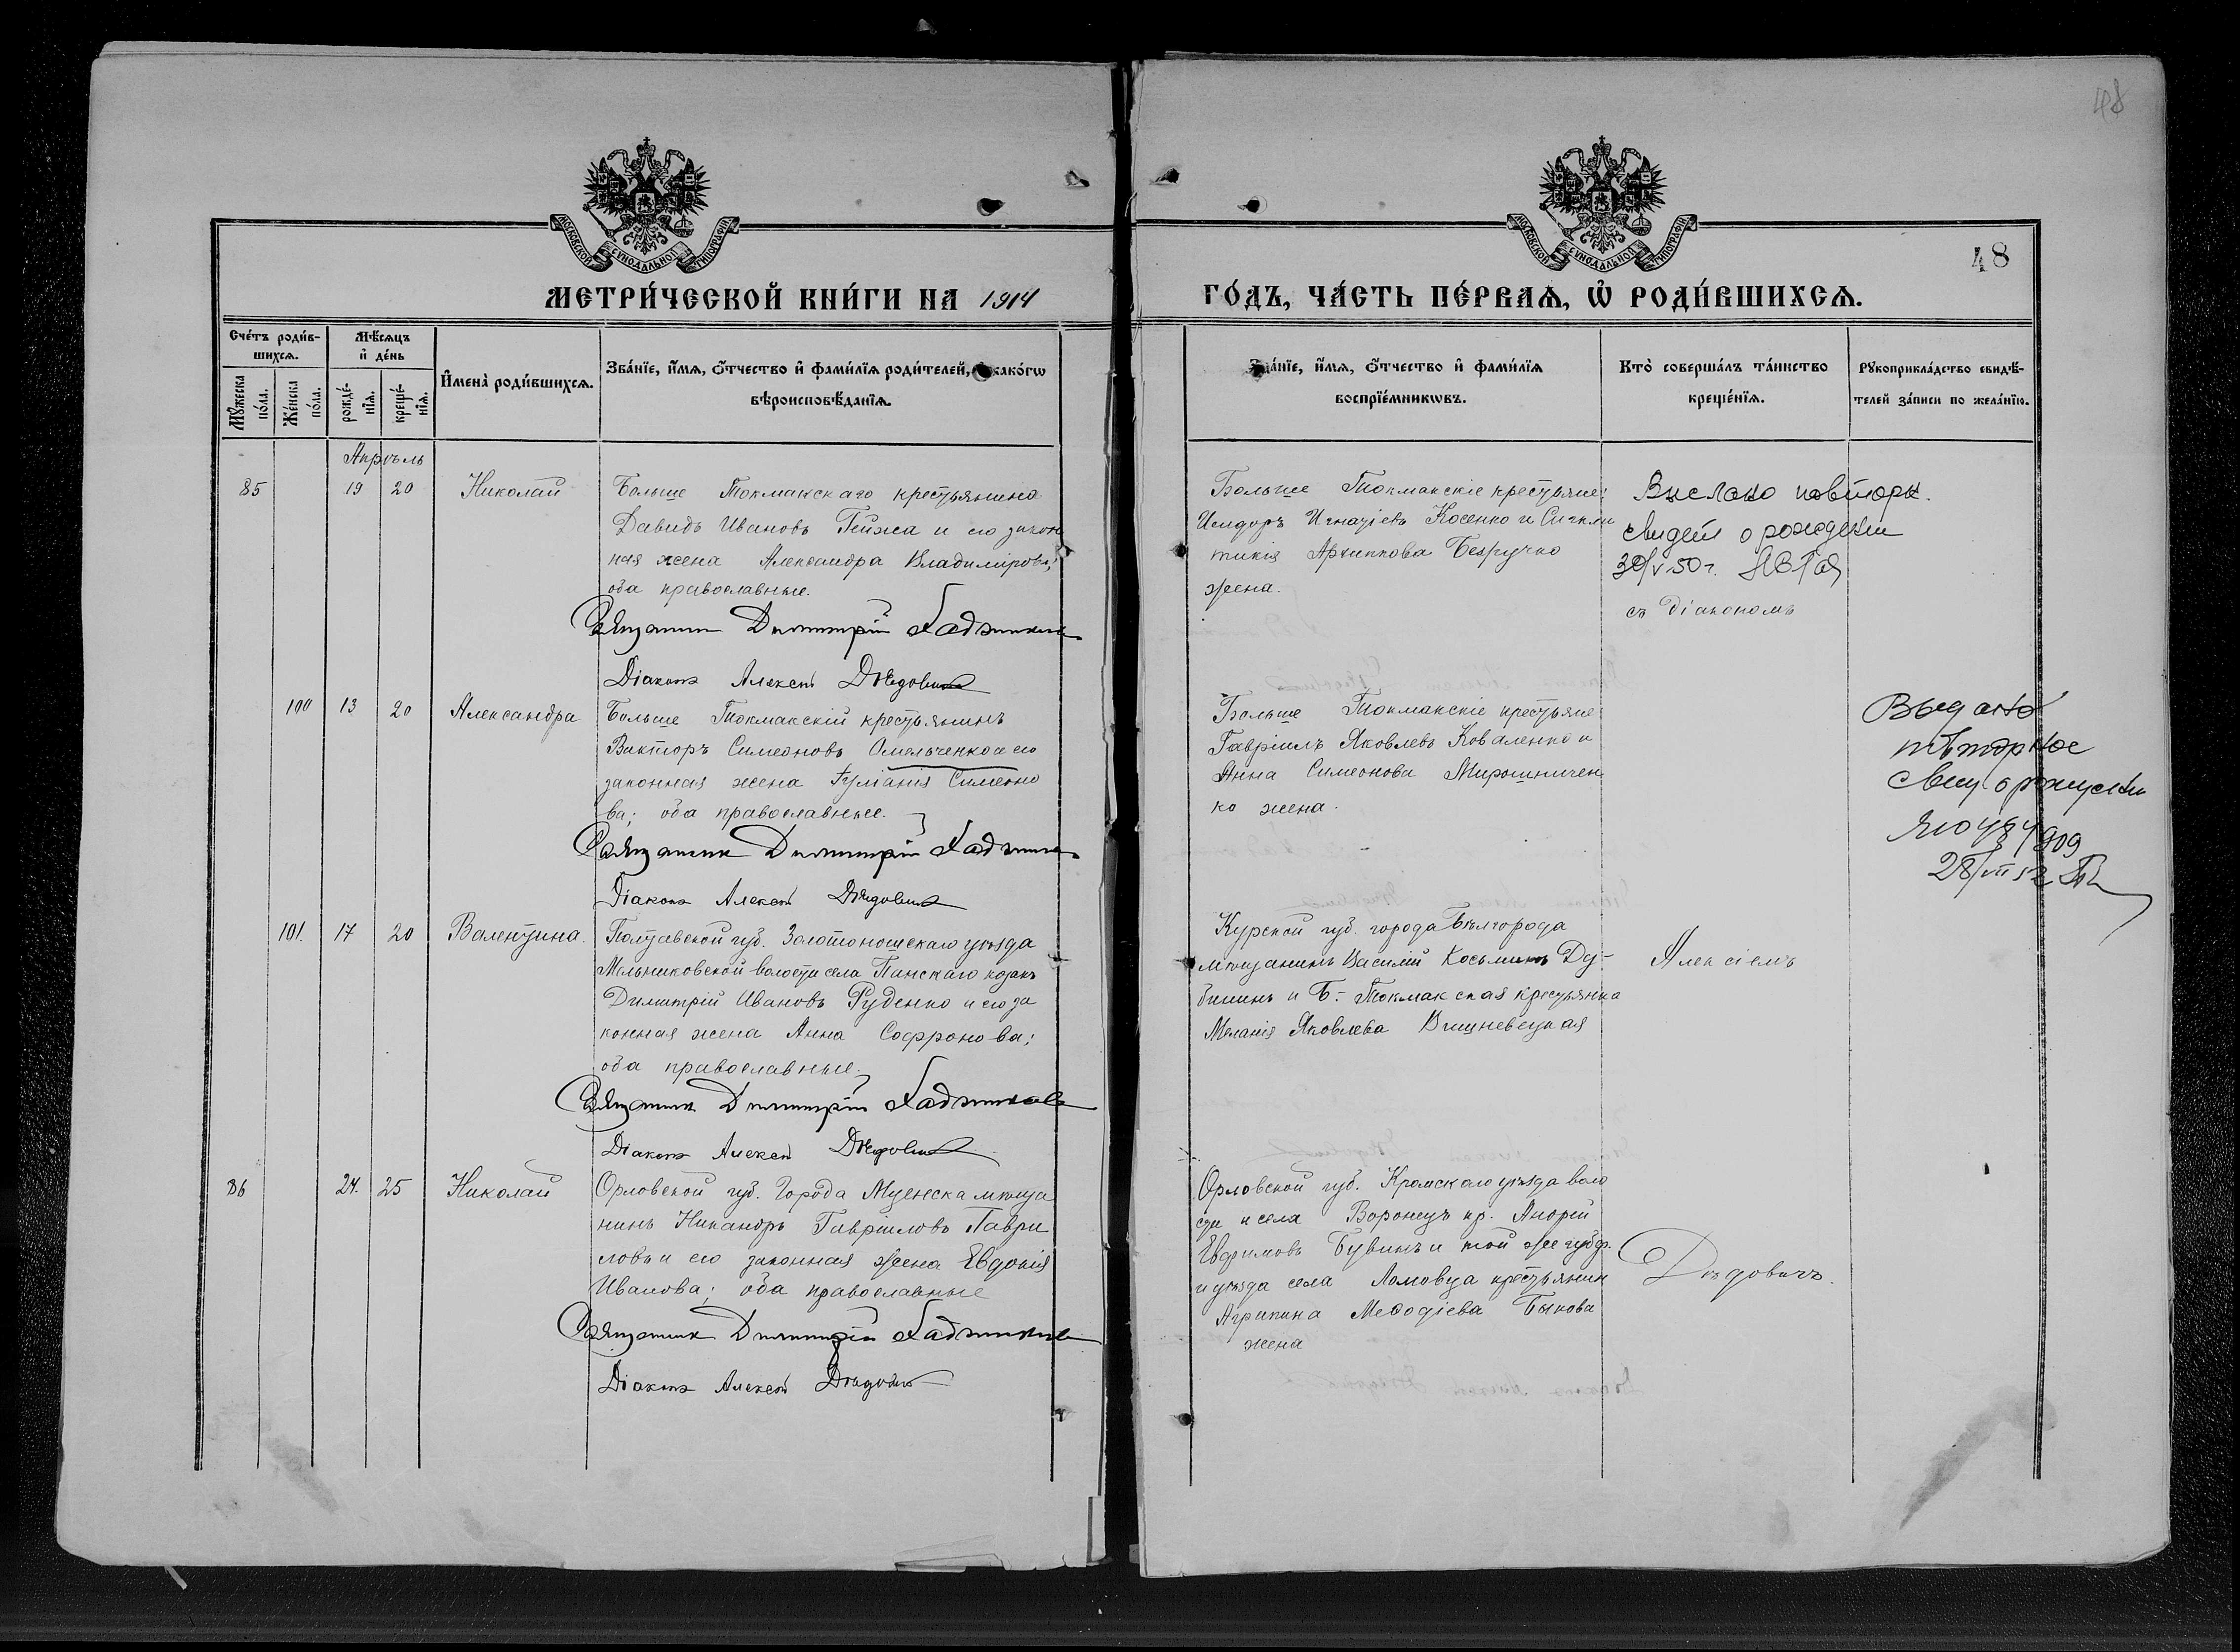 48
МОСКОВСКОЙ СѴНОДАЛЬНОЙ ТИПОГРАФІИ
МОСКОВСКОЙ СѴНОДАЛЬНОЙ ТИПОГРАФІИ
48
МЕТРИ́ЧЕСКОЙ КНИ́ГИ НА 1914
ГО́ДЪ, ЧА́СТЬ ПЕ́РВАѦ, Ѡ҆ РОДИ́ВШИХСѦ.
Сче́тъ роди́в-
шихсѧ.
Мѣ́сѧцъ
и҆ де́нь
Мꙋ́жеска
по́ла.
Же́нска
по́ла.
рожде́-
нїѧ.
креще́-
нїѧ.
И҆мена̀ роди́вшихсѧ.
Зва́нїе, и҆́мѧ, ѻ҆́тчество и҆ фами́лїѧ роди́телей, и҆ како́гѡ
вѣроисповѣ́данїѧ.
Зва́нїе, и҆́мѧ, ѻ҆́тчество и҆ фами́лїѧ
воспрїе́мникѡвъ.
Кто̀ соверша́лъ та́инство
креще́нїѧ.
Рꙋкоприкла́дство свидѣ́-
телей за́писи по жела́нїю.
Апрѣль
85 19 20 Николай
Больше Токмакскаго крестьянина
Давидъ Ивановъ Гейжа и его закон
ная жена Александра Владимірова;
оба православные.
Священник Димитрій
Діаконъ Алексѣй Дѣдовичъ
Больше Токмакскіе крестьяне:
Исидоръ Игнатіевъ Косенко и Синкли
тикія Архиппова Безручко
жена.
Выслано повторн.
свидет о рождении
30/V 50 г.
съ діакономъ
100 13 20 Александра
Больше Токмакскій крестьянинъ
Викторъ Симеоновъ Омельченко и его
законная жена Іуліанія Симеоно
ва; оба православные.
Священник Димитрій
Діаконъ Алексѣй Дѣдовичъ
Больше Токмакскіе крестьяне
Гавріилъ Яковлевъ Коваленко и
Анна Симеонова Мирошничен
ко жена.
Выдано
повторное
свид о рождении
28/VII 52
101. 17 20 Валентина.
Полтавской губ. Золотоношскаго уѣзда
Мельниковской волости села Панскаго козакъ
Димитрій Ивановъ Руденко и его за
конная жена Анна Софронова;
оба православные.
Священник Димитрій
Діаконъ Алексѣй Дѣдовичъ
Курской губ. города Бѣлгорода
мѣщанинъ Василій Косьминъ Ду-
бининъ и Б.-Токмакская крестьянка
Меланія Яковлева Вишневецкая
Алексіемъ
86 24. 25 Николай
Орловской губ. Города Мценска мѣща
нинъ Никаноръ Гавріиловъ Гаври
ловъ и его законная жена Евдокія
Иванова; оба православные
Священник Димитрій
Діаконъ Алексѣй Дѣдовичъ
Орловской губ. Кромскаго уѣзда воло
сти и села Воронецъ кр. Андрей
Евфимовъ Бувинъ и той же губ.
и уѣзда села Ломовца крестьянин
Агрипина Меѳодіева Быкова
жена
Дѣдовичъ.